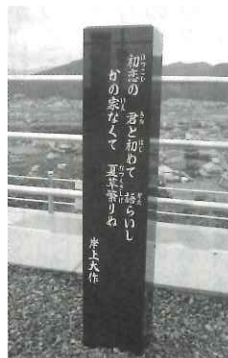 初恋の 君と初めて 語らいし
かの家なくて 夏草繁りぬ
岸上大作